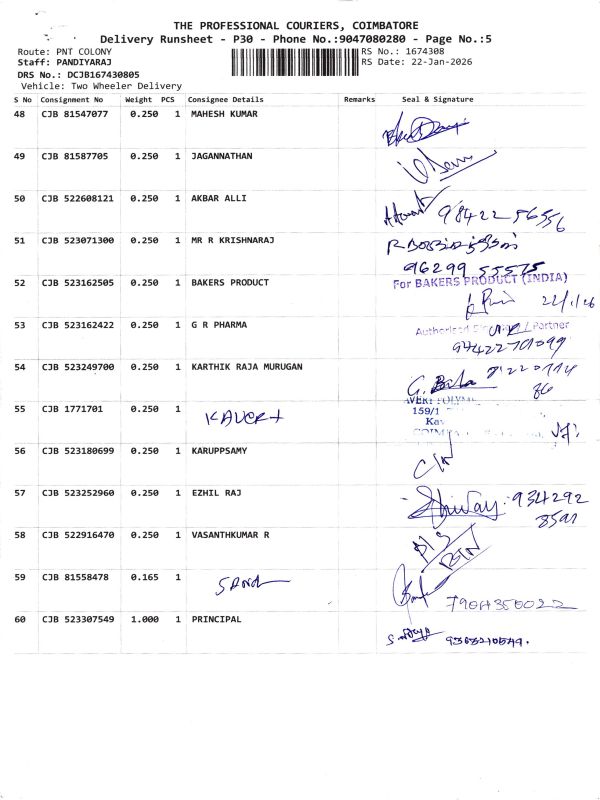 THE PROFESSIONAL COURIERS, COIMBATORE
Delivery Runsheet - P30 - Phone No.:9047080280 - Page No.:5
Route: PNT COLONY RS No.: 1674308
Staff: PANDIYARAJ RS Date: 22-Jan-2026
DRS No.: DCJB167430805
Vehicle: Two Wheeler Delivery
S No Consignment No Weight PCS Consignee Details Remarks Seal & Signature
48 CJB 81547077 0.250 1 MAHESH KUMAR
49 CJB 81587705 0.250 1 JAGANNATHAN
50 CJB 522608121 0.250 1 AKBAR ALLI
51 CJB 523071300 0.250 1 MR R KRISHNARAJ
96299 55575
52 CJB 523162505 0.250 1 BAKERS PRODUCT For BAKERS PRODUCT (INDIA)
53 CJB 523162422 0.250 1 G R PHARMA Partner
54 CJB 523249700 0.250 1 KARTHIK RAJA MURUGAN
55 CJB 1771701 0.250 1 159/1
56 CJB 523180699 0.250 1 KARUPPSAMY
57 CJB 523252960 0.250 1 EZHIL RAJ 934292
8591
58 CJB 522916470 0.250 1 VASANTHKUMAR R
59 CJB 81558478 0.165 1
60 CJB 523307549 1.000 1 PRINCIPAL